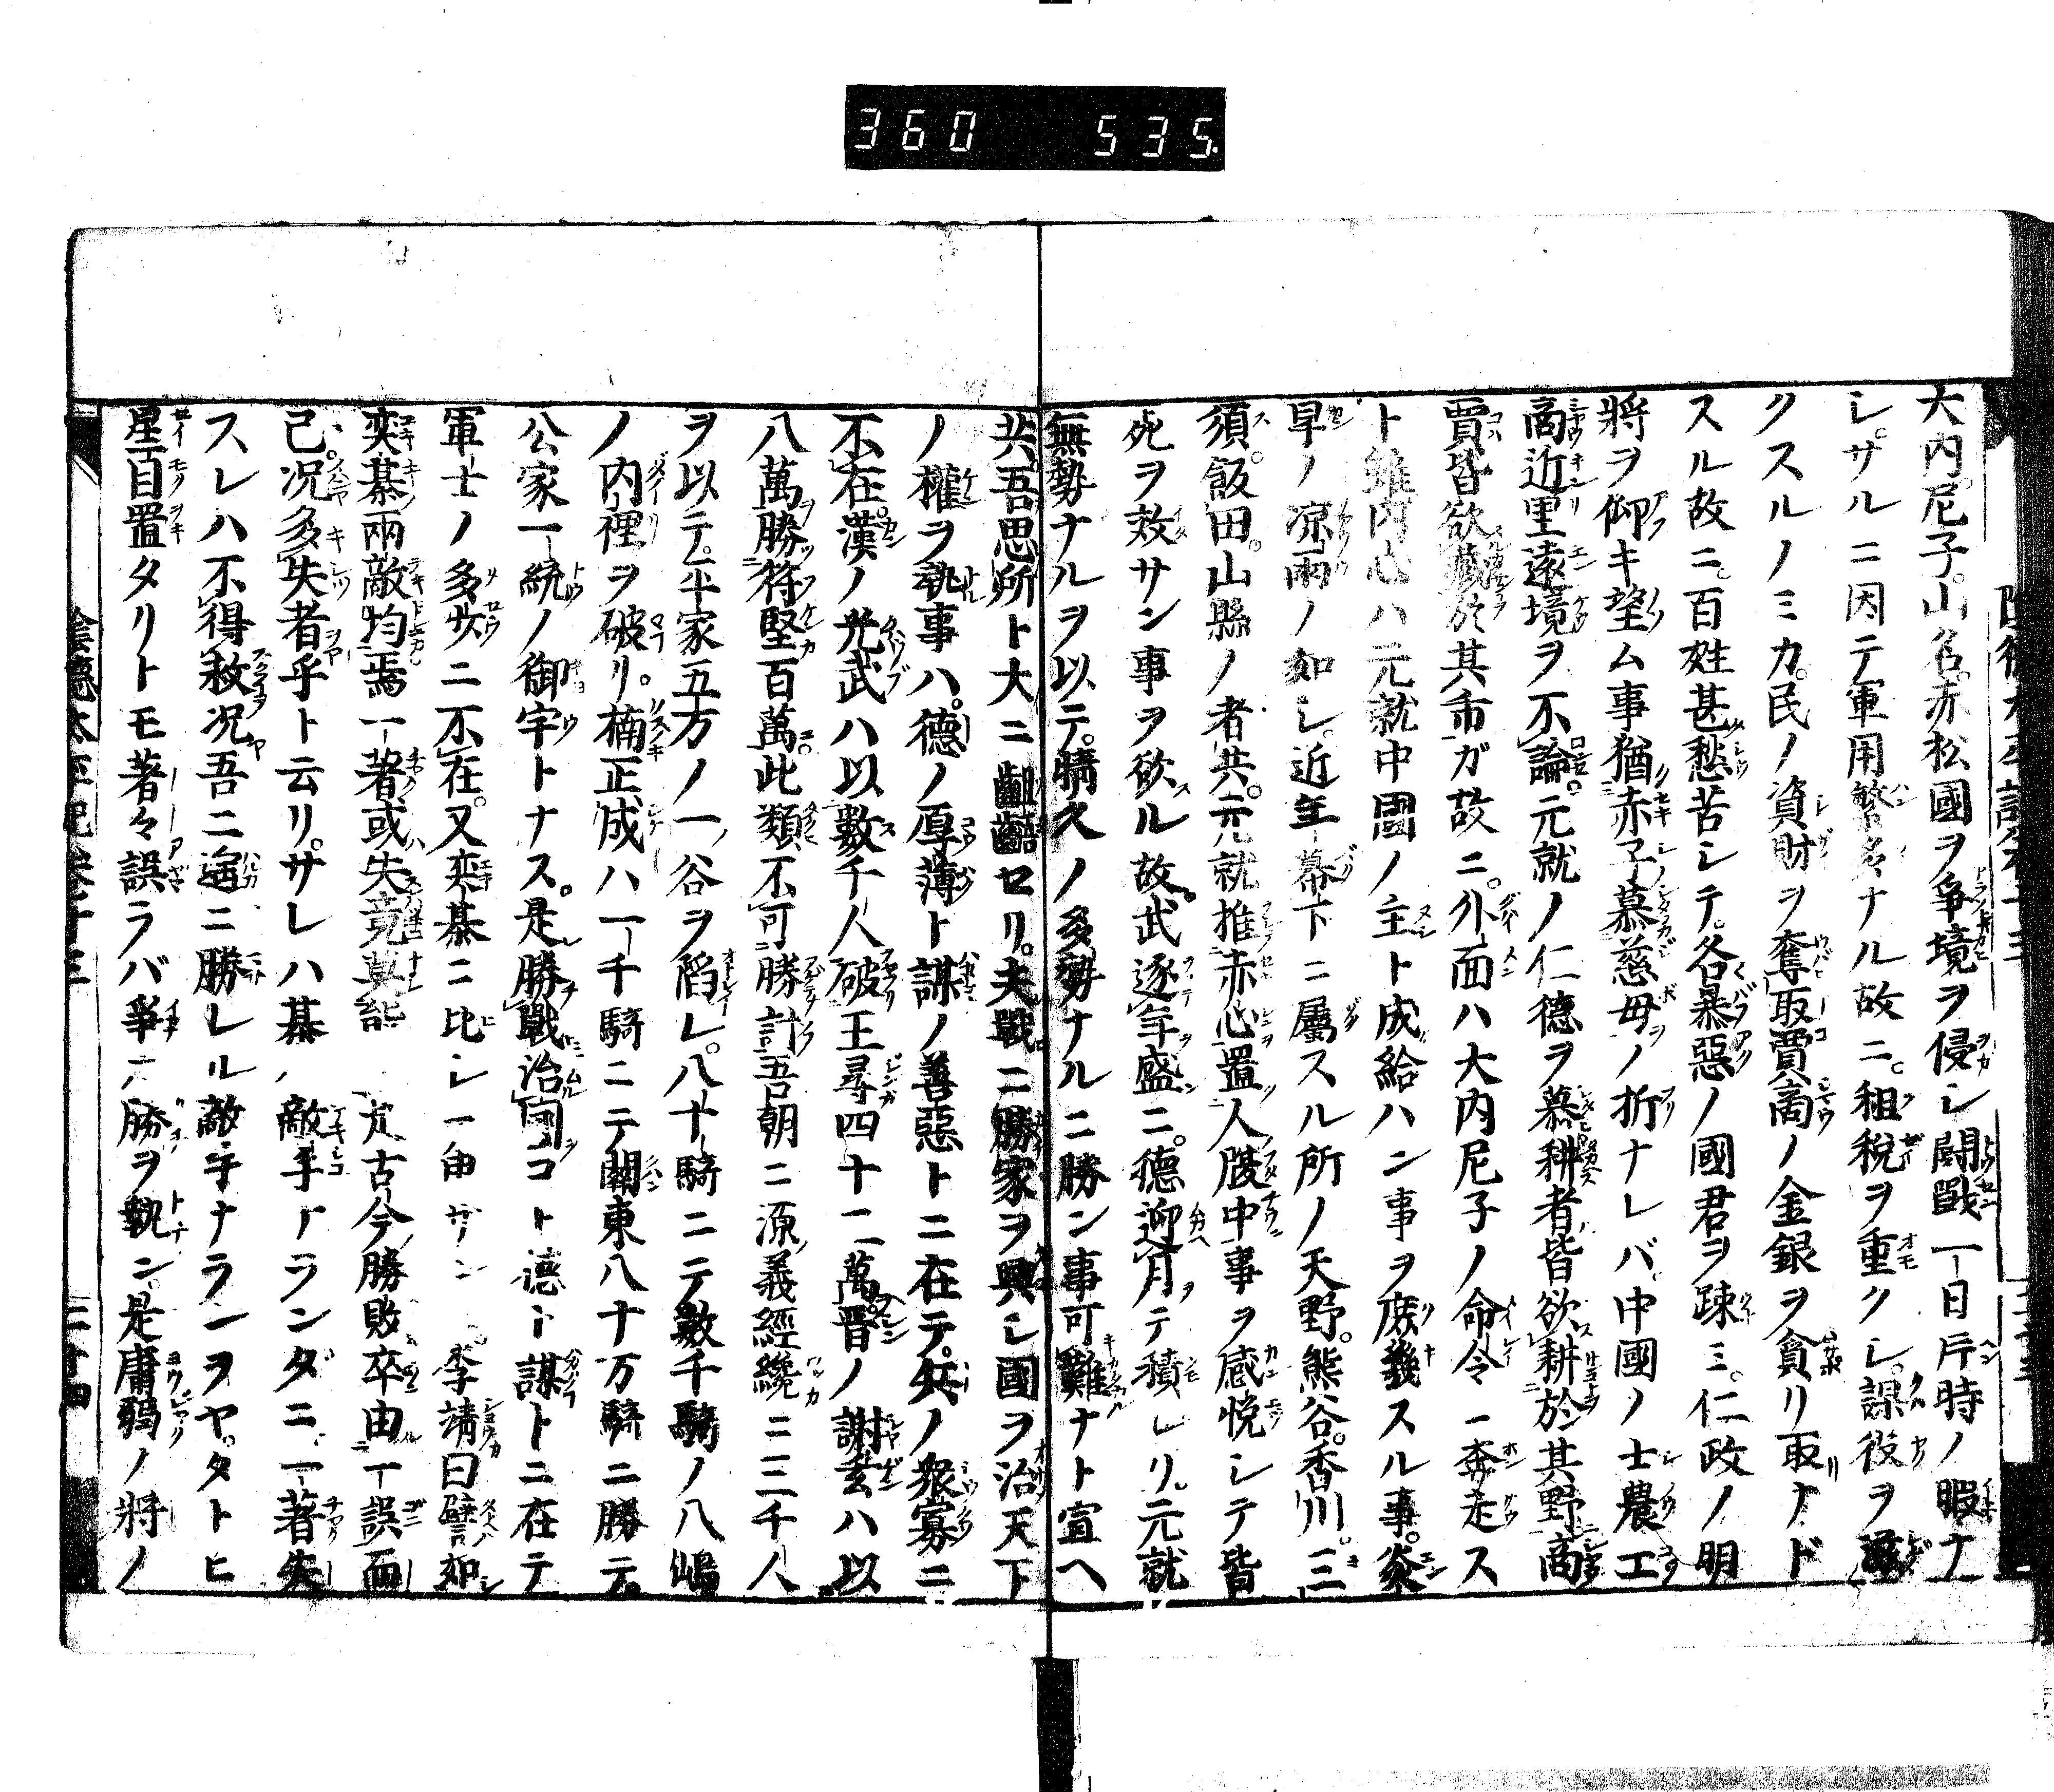 360 535.
大内尼子。山名。赤松國ヲ爭境ヲ侵シ鬪戰一日片時ノ暇ナ
シ。サルニ因テ軍用繁多ナル故ニ。租税ヲ重クシ。課役ヲ
クスルノミカ。民ノ資財ヲ奪取賣商ノ金銀ヲ貪リ取ナド
スル故ニ。百姓甚愁苦シテ。各暴惡ノ國君ヲ疎ミ。仁政ノ明
將ヲ仰キ望ム事猶赤子慕慈母ノ折ナレバ。中國ノ士農工
商近里遠境ヲ不論。元就ノ仁德ヲ慕耕者皆欲耕於其野商
賈皆欲藏於其市ガ故ニ。外面ハ大内尼子ノ命令ニ奔走ス
ト雖内心ハ元就中國ノ主ト成給ハン事ヲ庶幾スル事。炎
旱ノ凉雨ノ如シ。近年幕下ニ屬スル所ノ天野。熊谷。香川。三
須。飯田。山縣ノ者共。元就推赤心置人腹中事ヲ感悅シテ皆
死ヲ效サン事ヲ欲ル故。武逐年盛ニ。德迎月テ積レリ。元就
無勢ナルヲ以テ。晴久ノ多勢ナルニ勝ン事可難ナト宣ヘ
共。吾思所ト大ニ齟齬セリ。夫戰ニ勝家ヲ興シ國ヲ治天下
ノ權ヲ執事ハ。德ノ厚薄ト謀ノ善惡トニ在テ。兵ノ衆寡ニ
不在。漢ノ光武ハ以數千人破王尋四十二萬。晋ノ謝玄ハ以
八萬勝符堅百萬此類不可勝計吾朝ニ源義經纔ニ三千人
ヲ以テ。平家五万ノ一谷ヲ陷レ。八十騎ニテ數千騎ノ八嶋
ノ内裡ヲ破リ。楠正成ハ一千騎ニテ關東八十万騎ニ勝テ。
公家一統ノ御宇トナス。是勝戰治國コト德ト謀トニ在テ
軍士ノ多少ニ不在。又奕棊ニ比シ申サン 李靖曰譬如
奕棊兩敵均焉一著或失竟莫能 是古今勝敗卒由一誤而
已。况多失者乎ト云リ。サレハ棊ノ敵手ナランダニ。一著失
スレハ不得救况吾ニ遙ニ勝レル敵手ナランヲヤ。タトヒ
星目置タリトモ著々誤ラバ爭カ勝ヲ執ン。是庸弱ノ將ノ
陰德太平記卷十三